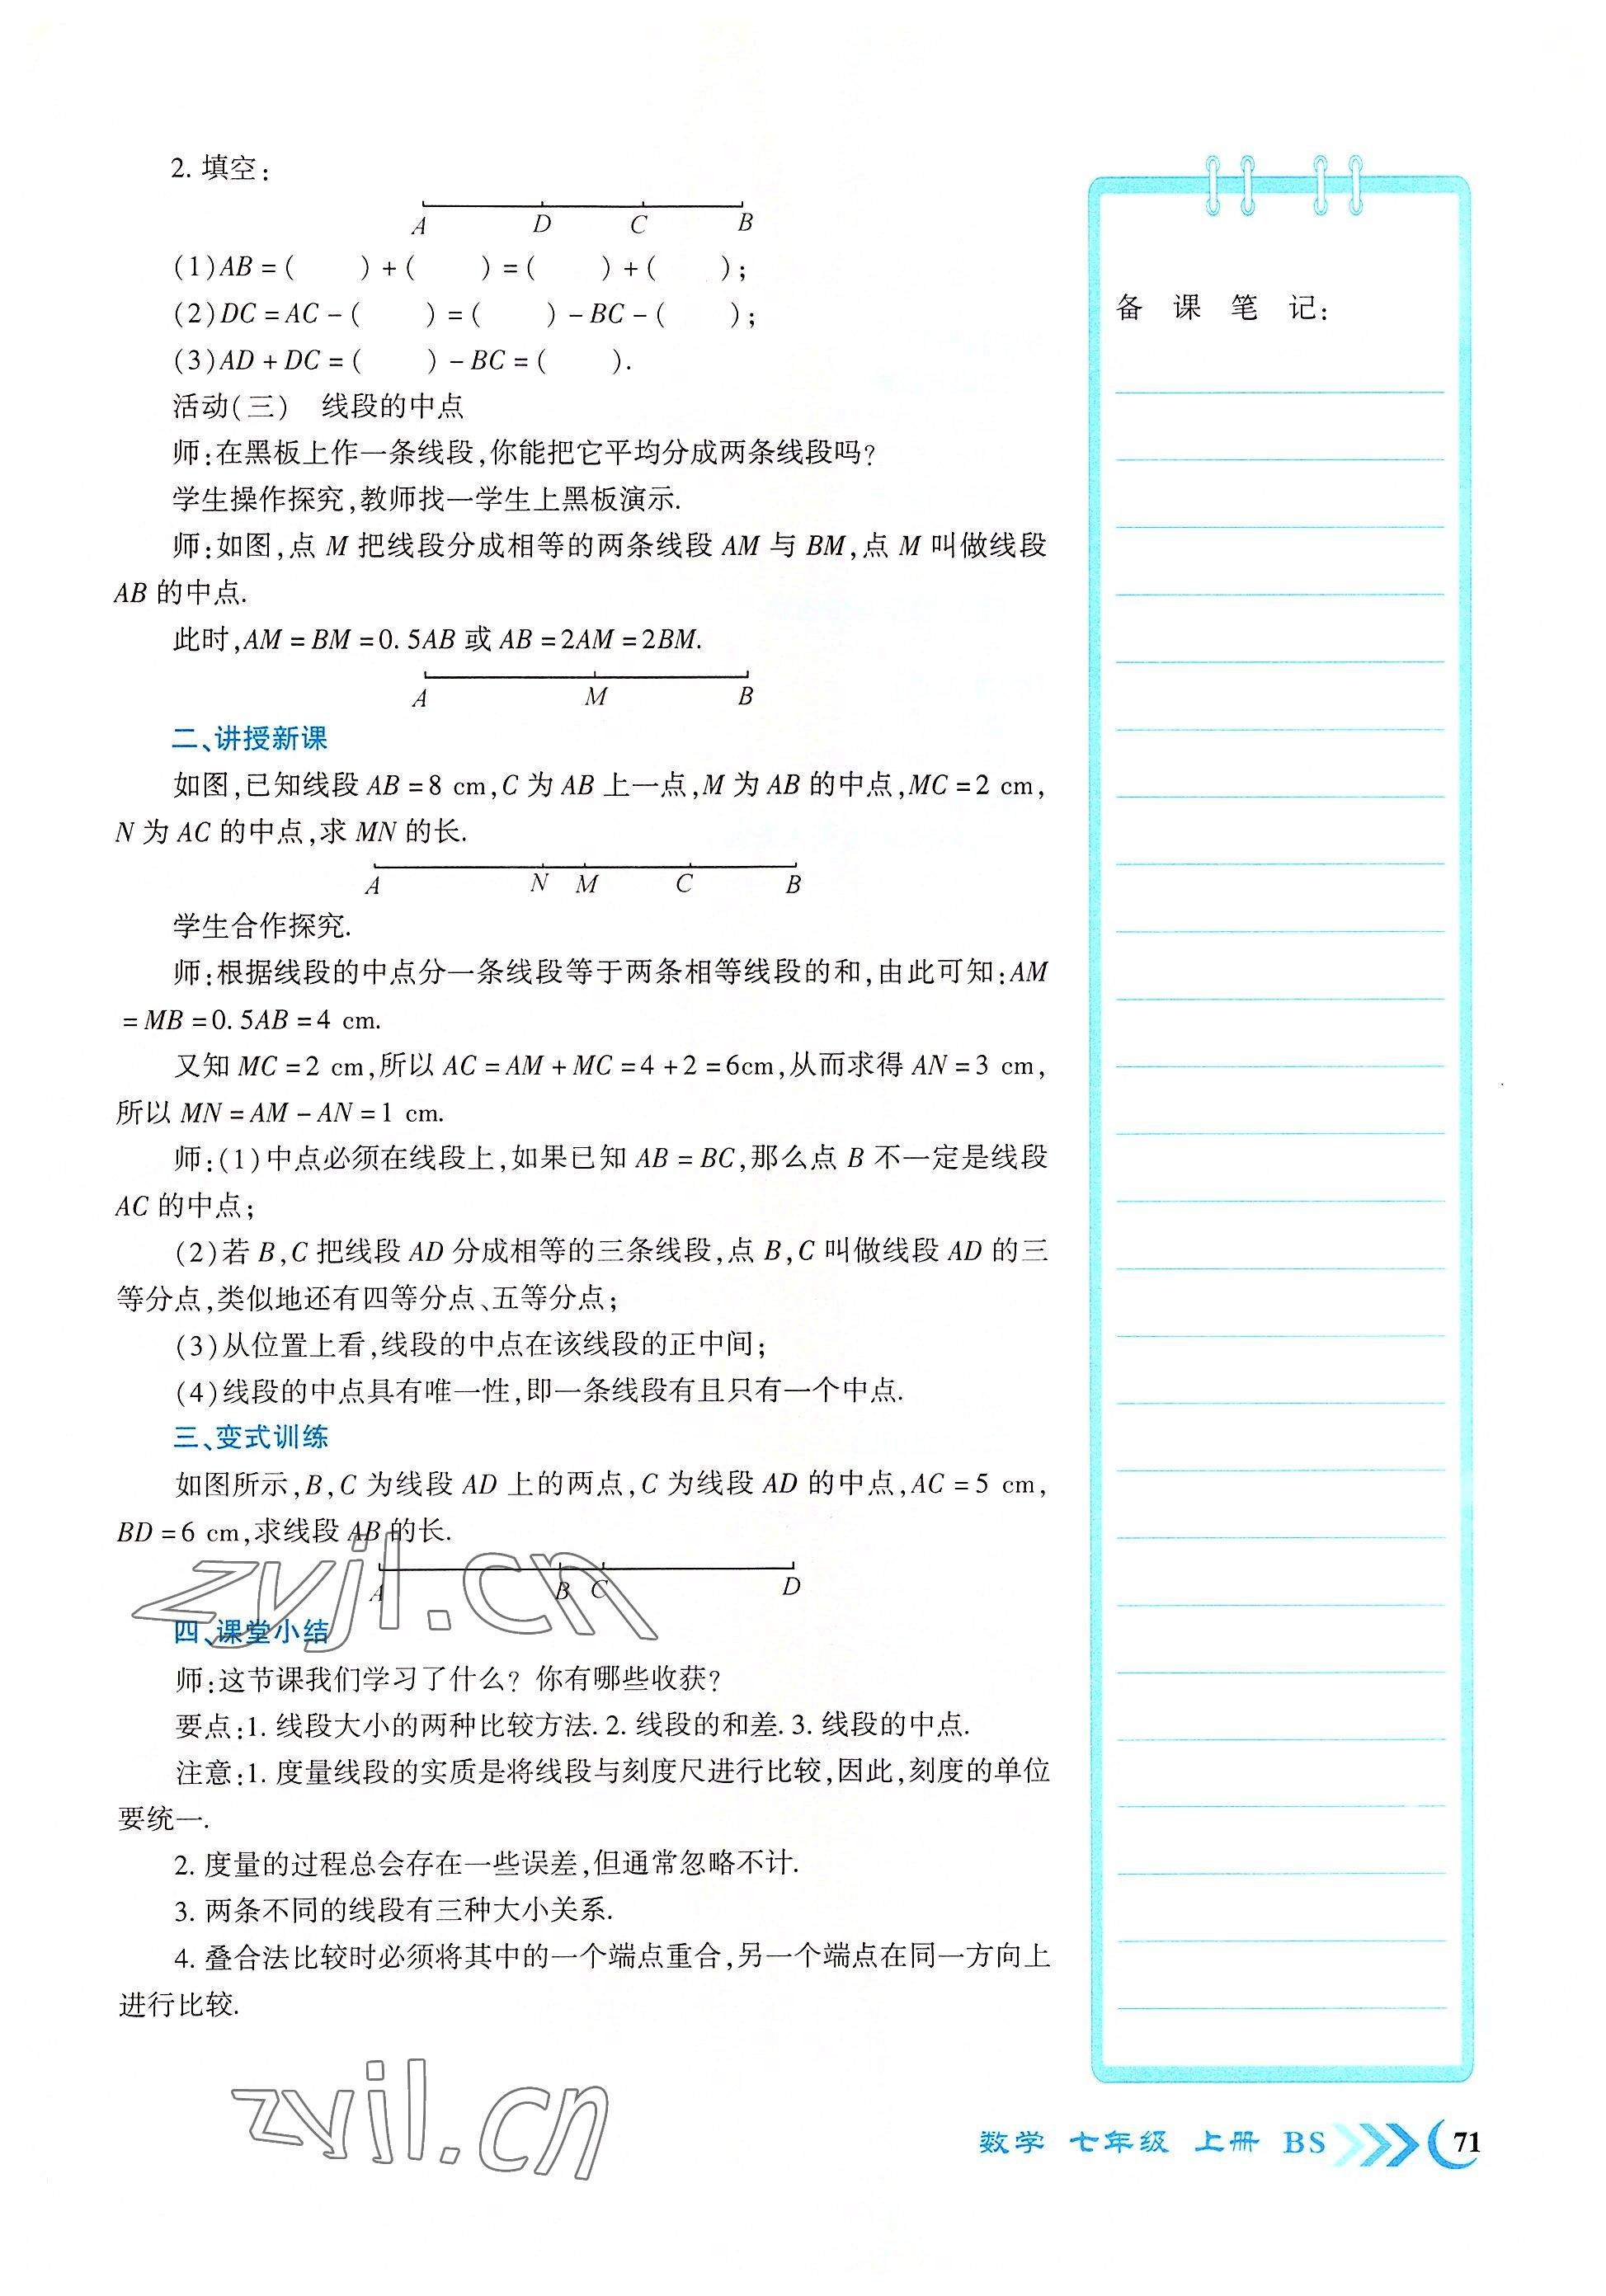 2. 填空:
A D C B
(1)AB=(　　)+(　　)=(　　)+(　　);
(2)DC=AC-(　　)=(　　)-BC-(　　);
(3)AD+DC=(　　)-BC=(　　).
活动(三)　线段的中点
师:在黑板上作一条线段,你能把它平均分成两条线段吗?
学生操作探究,教师找一学生上黑板演示.
师:如图,点 M 把线段分成相等的两条线段 AM 与 BM,点 M 叫做线段
AB 的中点.
此时,AM=BM=0.5AB 或 AB=2AM=2BM.
A M B
二、讲授新课
如图,已知线段 AB=8 cm,C 为 AB 上一点,M 为 AB 的中点,MC=2 cm,
N 为 AC 的中点,求 MN 的长.
A N M C B
学生合作探究.
师:根据线段的中点分一条线段等于两条相等线段的和,由此可知:AM
=MB=0.5AB=4 cm.
又知 MC=2 cm,所以 AC=AM+MC=4+2=6cm,从而求得 AN=3 cm,
所以 MN=AM-AN=1 cm.
师:(1)中点必须在线段上,如果已知 AB=BC,那么点 B 不一定是线段
AC 的中点;
(2)若 B,C 把线段 AD 分成相等的三条线段,点 B,C 叫做线段 AD 的三
等分点,类似地还有四等分点、五等分点;
(3)从位置上看,线段的中点在该线段的正中间;
(4)线段的中点具有唯一性,即一条线段有且只有一个中点.
三、变式训练
如图所示,B,C 为线段 AD 上的两点,C 为线段 AD 的中点,AC=5 cm,
BD=6 cm,求线段 AB 的长.
A B C D
四、课堂小结
师:这节课我们学习了什么? 你有哪些收获?
要点:1. 线段大小的两种比较方法. 2. 线段的和差. 3. 线段的中点.
注意:1. 度量线段的实质是将线段与刻度尺进行比较,因此,刻度的单位
要统一.
2. 度量的过程总会存在一些误差,但通常忽略不计.
3. 两条不同的线段有三种大小关系.
4. 叠合法比较时必须将其中的一个端点重合,另一个端点在同一方向上
进行比较.
备 课 笔 记:
zyjl.cn
zyjl.cn
数学 七年级 上册 BS 71